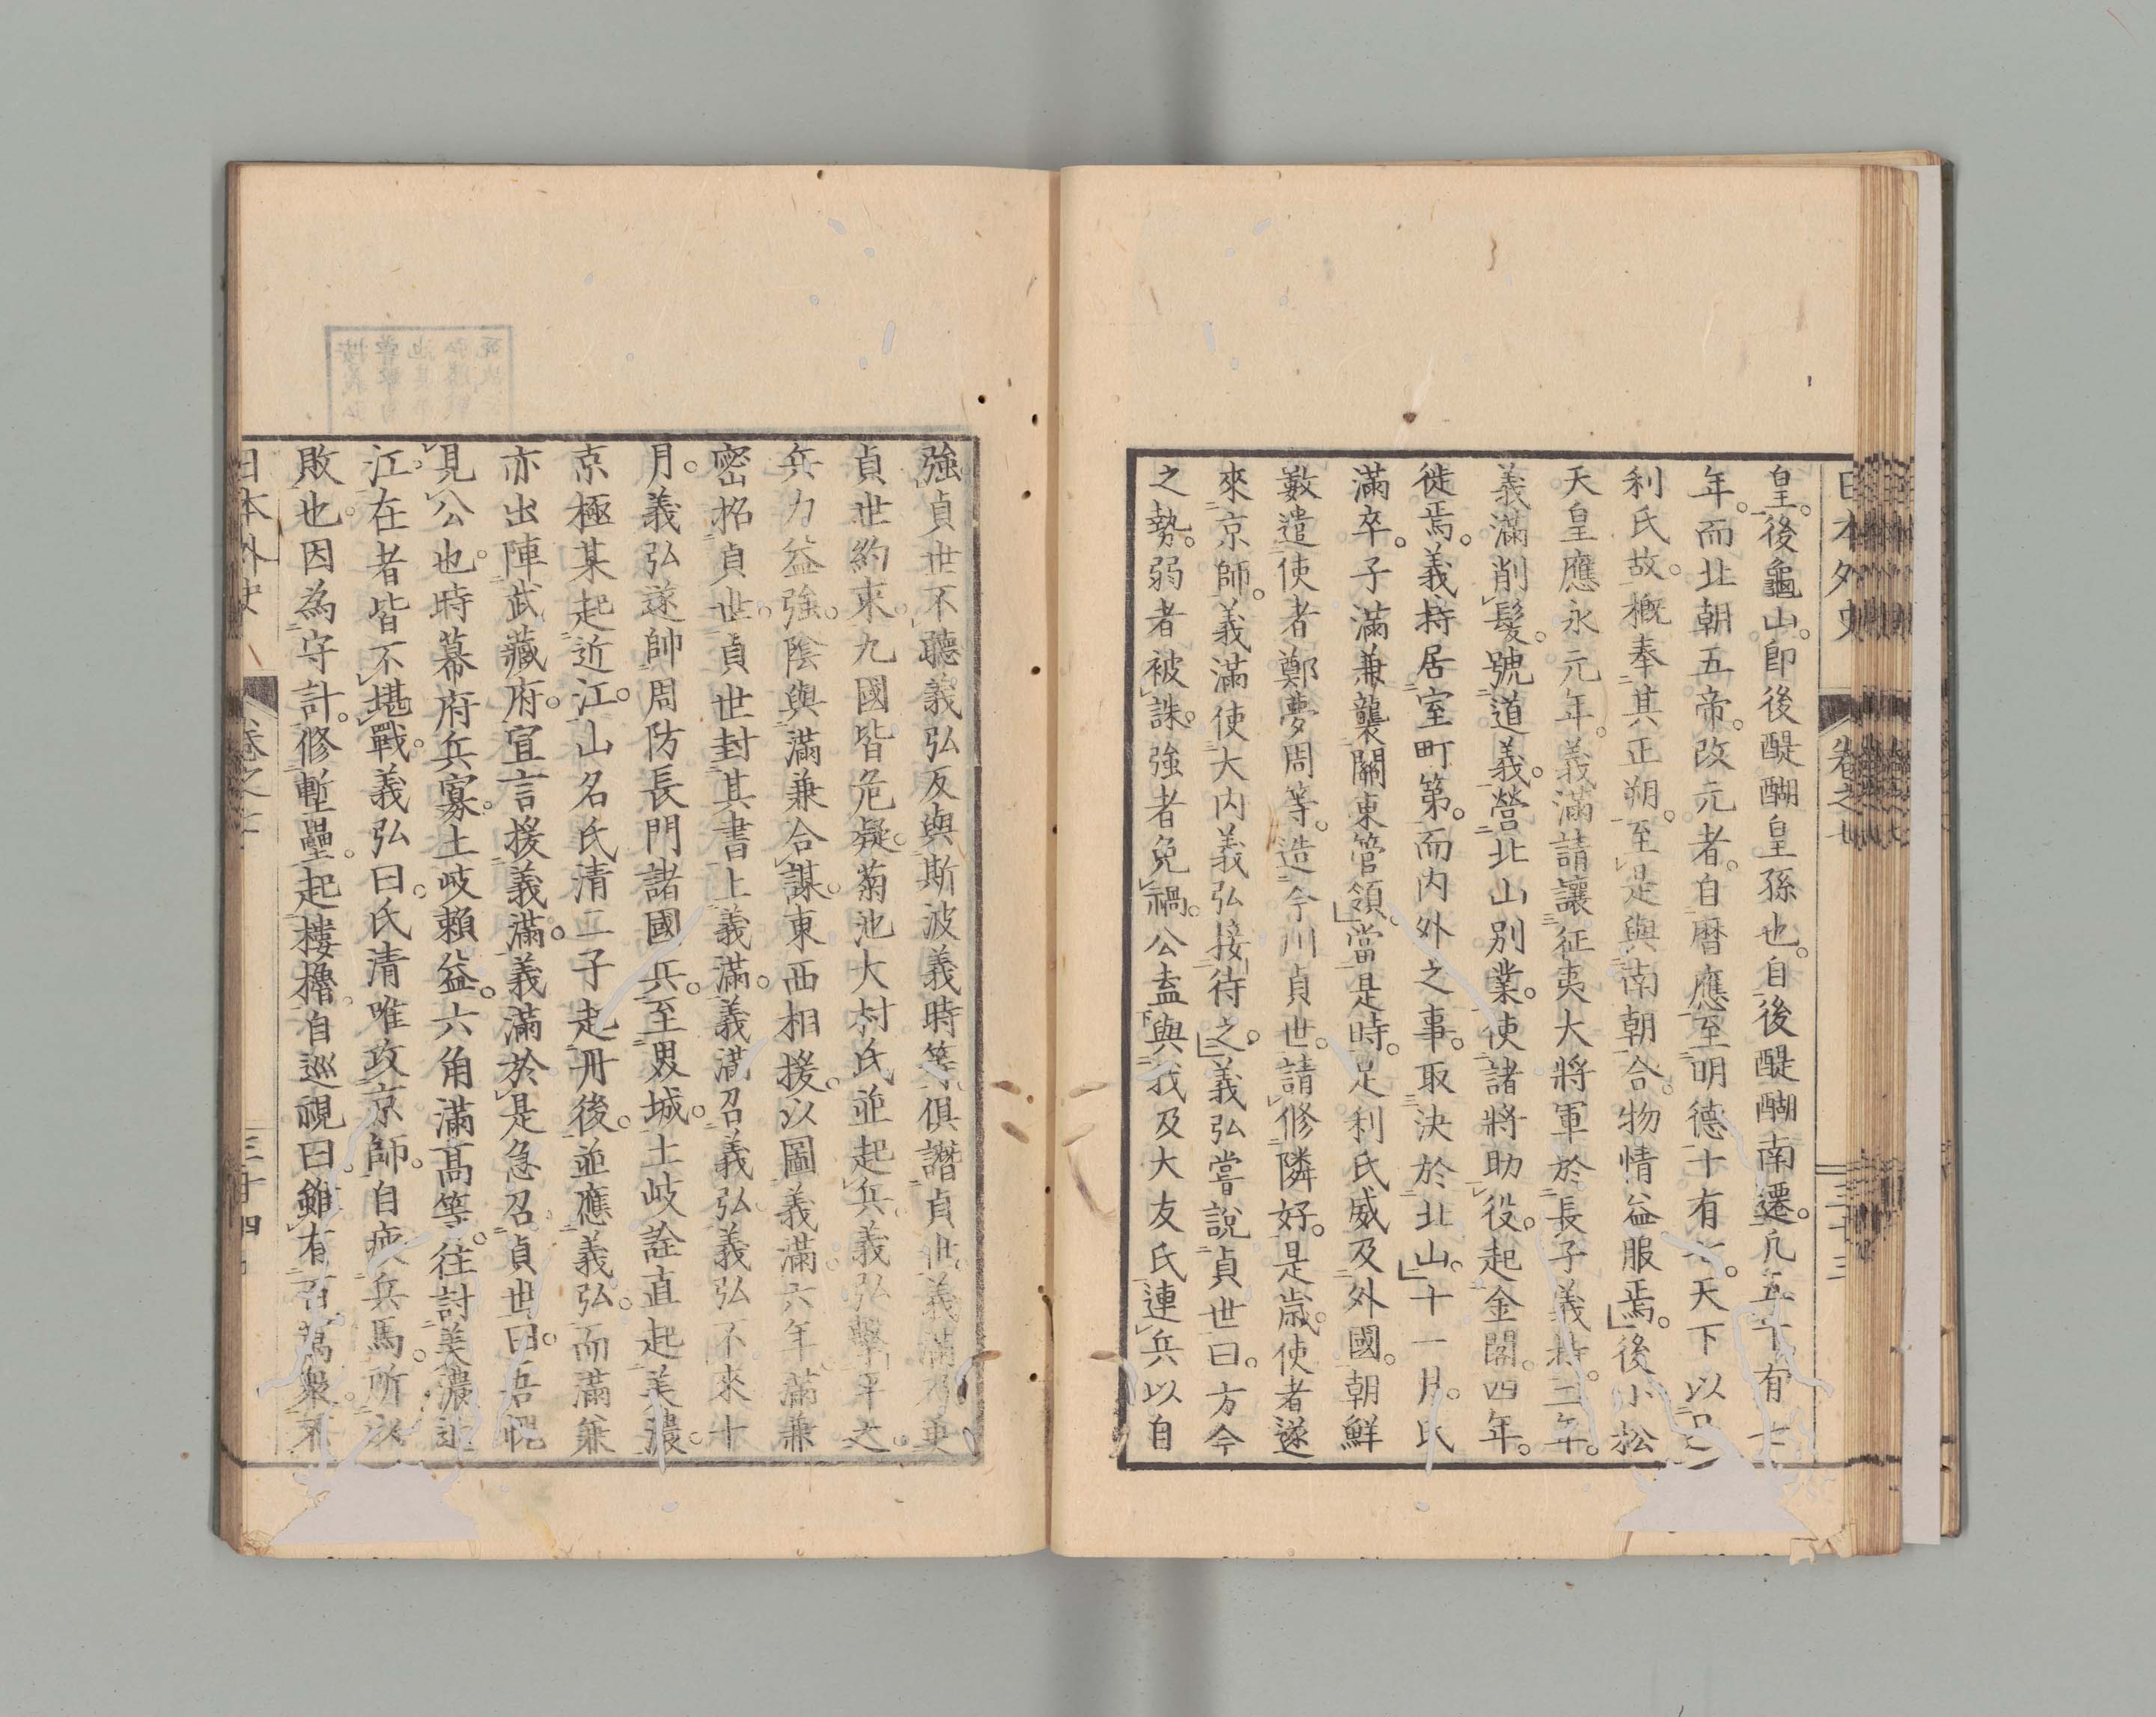 日本外史 卷之七 三十三
皇。後龜山。卽後醍醐皇孫也。自後醍醐南遷。凡五十有七
年。而北朝五帝。改元者。自曆應至明德十有七。天下以足
利氏故。概奉其正朔。至是與南朝合。物情益服焉。後小松
天皇應永元年。義滿請讓征夷大將軍於長子義持。三年。
義滿削髮。號道義。營北山別業。使諸將助役。起金閣。四年。
徙焉。義持居室町第。而内外之事。取決於北山。十一月。氏
滿卒。子滿兼襲關東管領。當是時。足利氏威及外國。朝鮮
數遣使者鄭夢周等。造今川貞世。請修隣好。是歲。使者遂
來京師。義滿使大内義弘接待之。義弘嘗說貞世曰。方今
之勢。弱者被誅。強者免禍。公盍與我及大友氏連兵以自
強。貞世不聽。義弘反與斯波義時等。俱譖貞世。義滿乃更
貞世約束。九國皆危疑。菊池大村氏並起兵。義弘擊平之。
兵力益強。陰與滿兼合謀。東西相援。以圖義滿。六年。滿兼
密招貞世。貞世封其書上義滿。義滿召義弘。義弘不來。十
月。義弘遂帥周防長門諸國兵。至界城。土岐詮直起美濃。
京極某起近江。山名氏清二子起丹後。並應義弘。而滿兼
亦出陣武藏府。宣言援義滿。義滿於是急召貞世曰。吾愧
見公也。時幕府兵寡。土岐賴益。六角滿高等。往討美濃近
江。在者皆不堪戰。義弘曰。氏清唯攻京師。自疲兵馬。所以
敗也。因為守計。修塹壘。起樓櫓。自巡視曰。雖有百萬衆。不
日本外史 卷之七 三十四